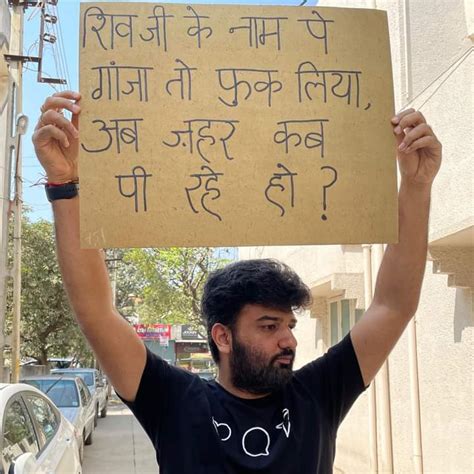 शिवजी के नाम पे
गांजा तो फुक लिया,
अब ज़हर कब
पी रहे हो ?